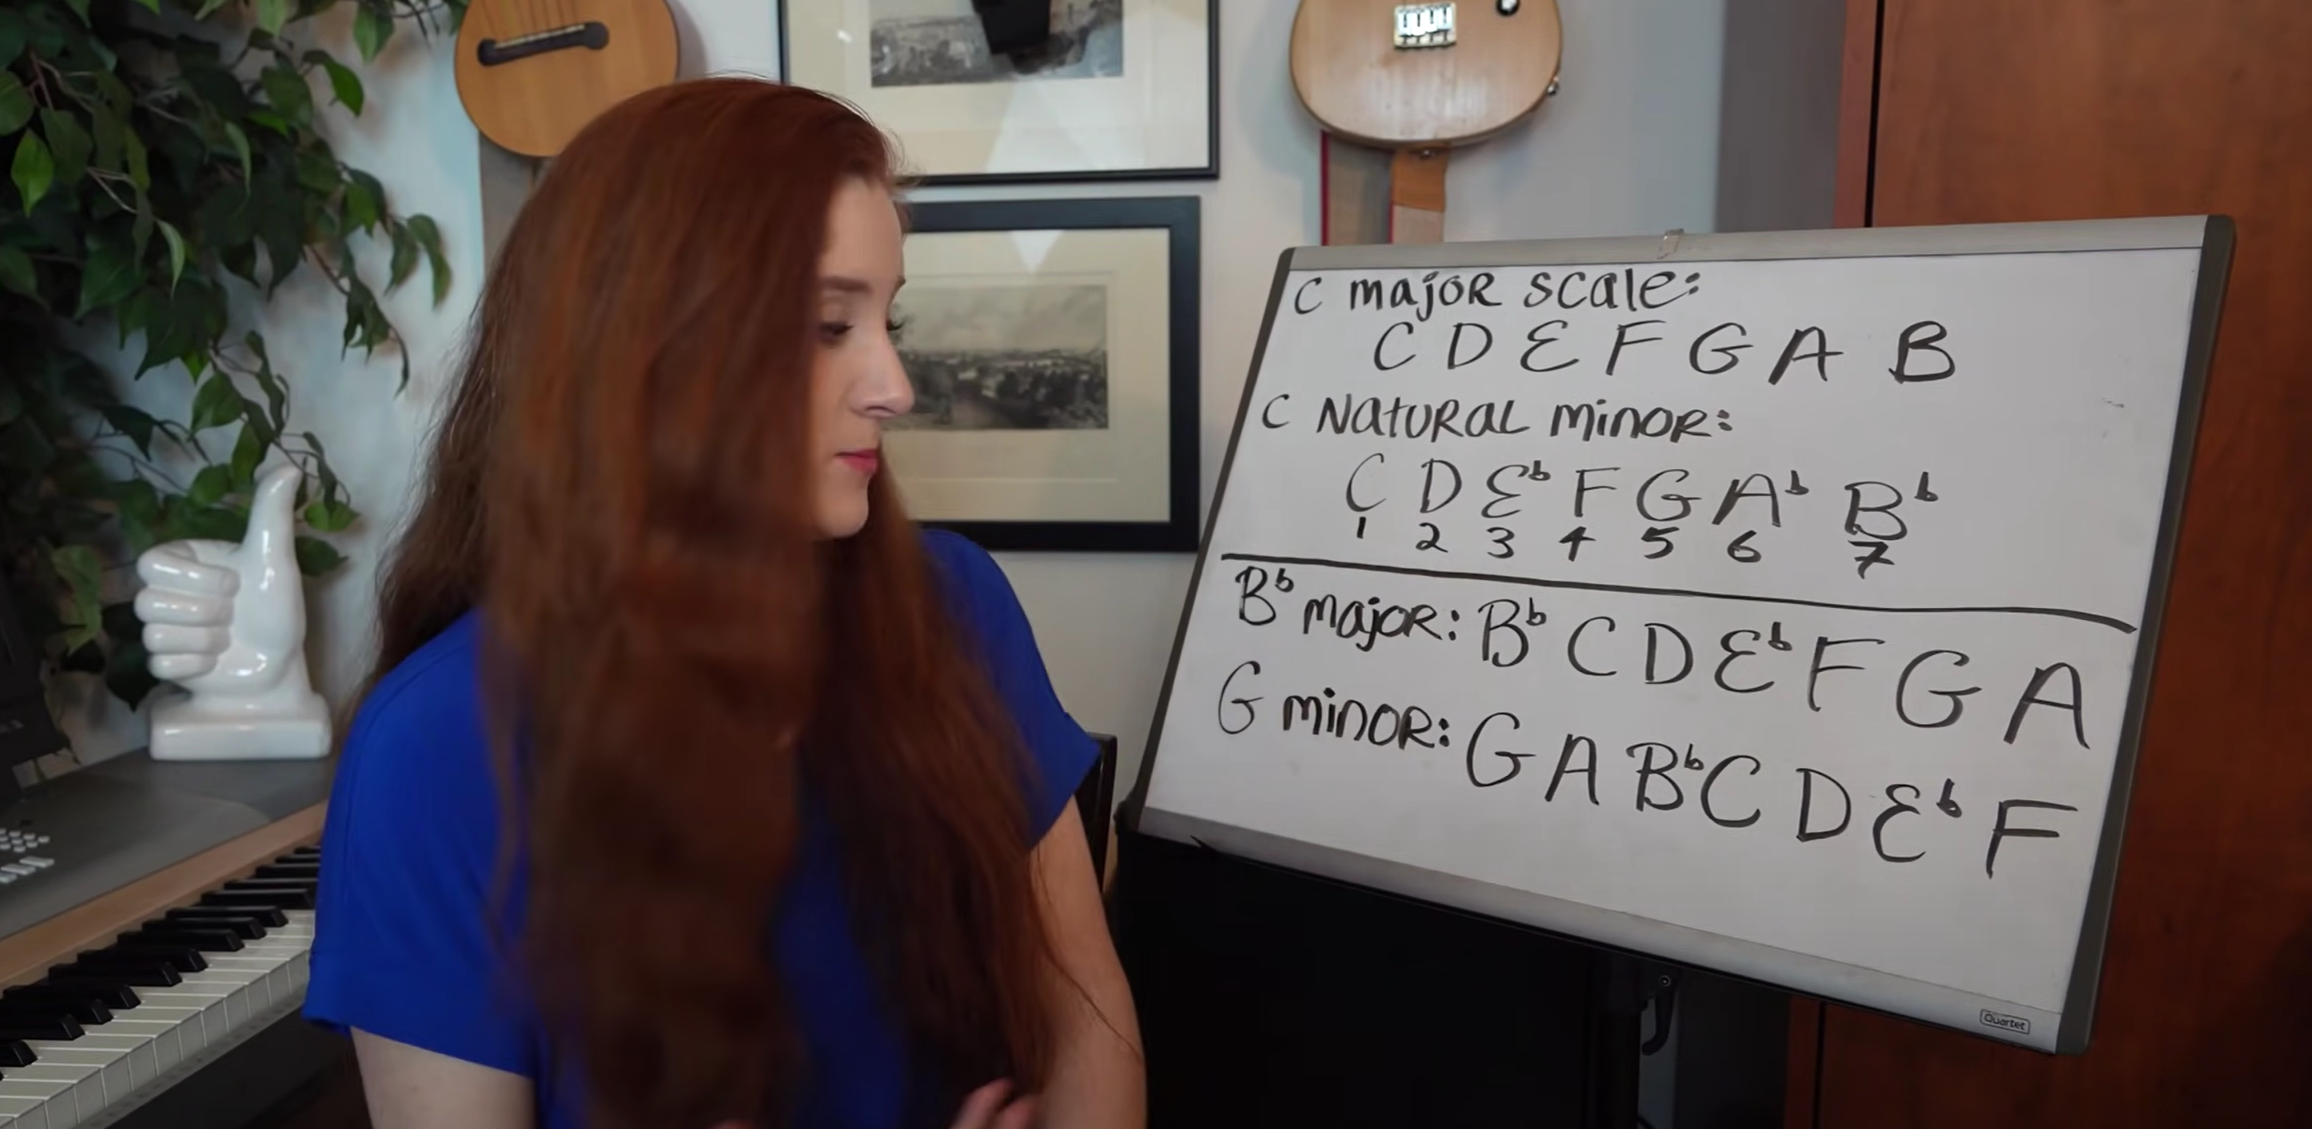 C major scale:
C D E F G A B
C Natural minor:
C D E♭ F G A♭ B♭
1 2 3 4 5 6 7
B♭ major: B♭ C D E♭ F G A
G minor: G A B♭ C D E♭ F
Quartet